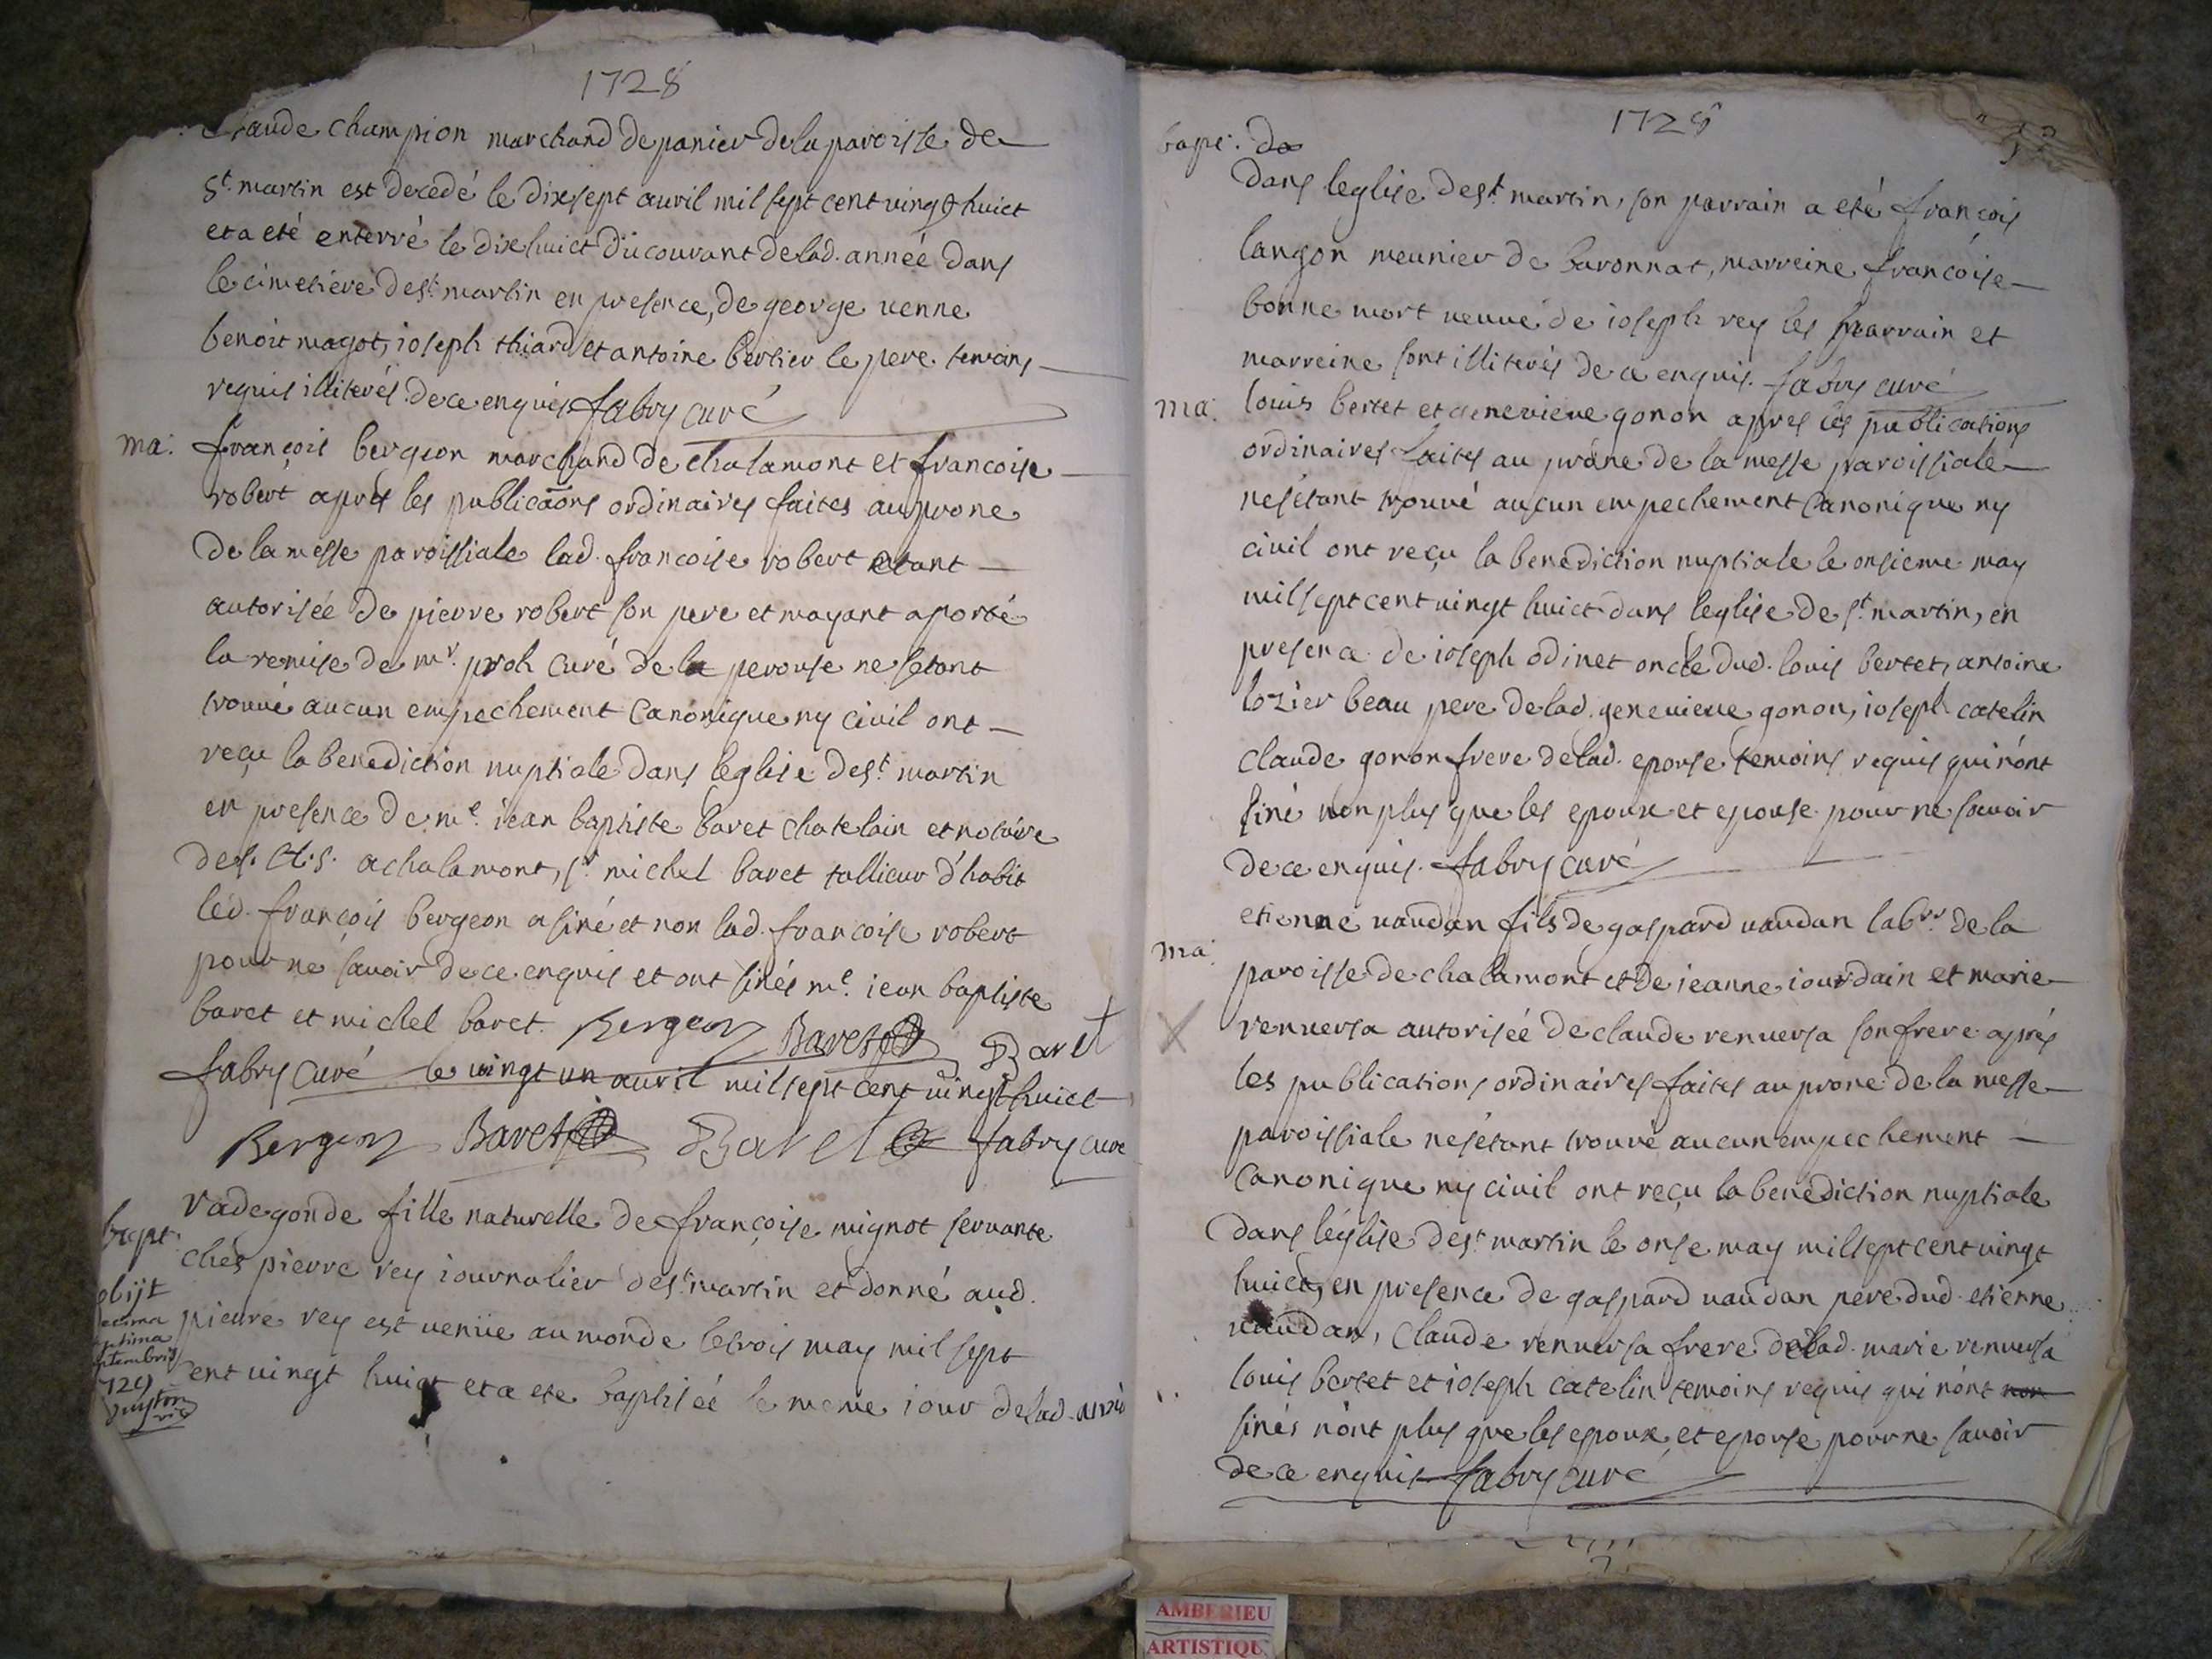 1728
Claude champion marchand de panier de la paroisse de
st. martin est decedé le dix sept auril mil sept cent uingt huict
et a eté enterré le dix huict du courant de lad. année dans
le cimetiére de st. martin en presence, de george uenne
benoit magot, ioseph thiard et antoine bertier le pere. temoins
requis illiterés de ce enquis fabry curé
ma: françois bergeon marchand de chalamont et francoise
robert aprés les publicaōns ordinaires faites au prone
de la messe paroissiale lad. francoise robert etant
autorisée de pierre robert son pere et mayant aporté
la remise de mr. proh curé de la perouse ne setant
trouué aucun empechement canonique ny ciuil ont
reçu la benediction nuptiale dans leglise de st. martin
en presence de me. iean baptiste baret chatelain et notaire
de s. a. s. a chalamont, sr. michel baret tallieur d'habit
led. françois bergeon a siné et non lad. francoise robert
pour ne sauoir de ce enquis et ont sinés me. iean baptiste
baret et michel baret. Bergeon Baret Baret
fabry curé le uingt un auril mil sept cent uingt huict
Bergeon Baret Baret fabry curé
bapt: radegonde fille naturelle de françoise mignot seruante
chés pierre rey iournalier de st. martin et donné aud.
pierre rey est uenüe au monde le trois may mil sept
cent uingt huict et a eté baptisée le meme iour de lad. année
obijt
decima
septima
septembris
1729
1728
bapt: da
dans leglise de st. martin, son parrain a eté françois
langon meunier de baronnat, marreine françoise
bonne mort ueuue de ioseph rey les parrain et
marreine sont illiterés de ce enquis. fabry curé
ma: louis bertet et geneuieue gonon apres les publications
ordinaires faites au prône de la messe paroissiale
ne s'étant trouué aucun empechement canonique ny
ciuil ont reçu la benediction nuptiale le onsieme may
mil sept cent uingt huict dans leglise de st. martin, en
presence de ioseph odinet oncle dud. louis bertet, antoine
lozier beau pere de lad. geneuieue gonon, ioseph catelin
claude gonon frere de lad. epouse temoins requis qui n'ónt
siné non plus que les epoux et epouse pour ne sauoir
de ce enquis. fabry curé
ma: etienne uaudan fils de gaspard uaudan labr. de la
paroisse de chalamont et de ieanne iourdain et marie
renuersa autorisée de claude renuersa son frere aprés
les publications ordinaires faites au prone de la messe
paroissiale ne s'étant trouué aucun empechement
canonique ny ciuil ont reçu la benediction nuptiale
dans léglise de st. martin le onse may mil sept cent uingt
huict, en presence de gaspard uaudan pere dud. etienne
uaudan, claude renuersa frere de lad. marie renuersa
louis bertet et ioseph catelin temoins requis qui n'ónt non
sinés n'ónt plus que les epoux et epouse pour ne sauoir
de ce enquis fabry curé
AMBERIEU
ARTISTIQU